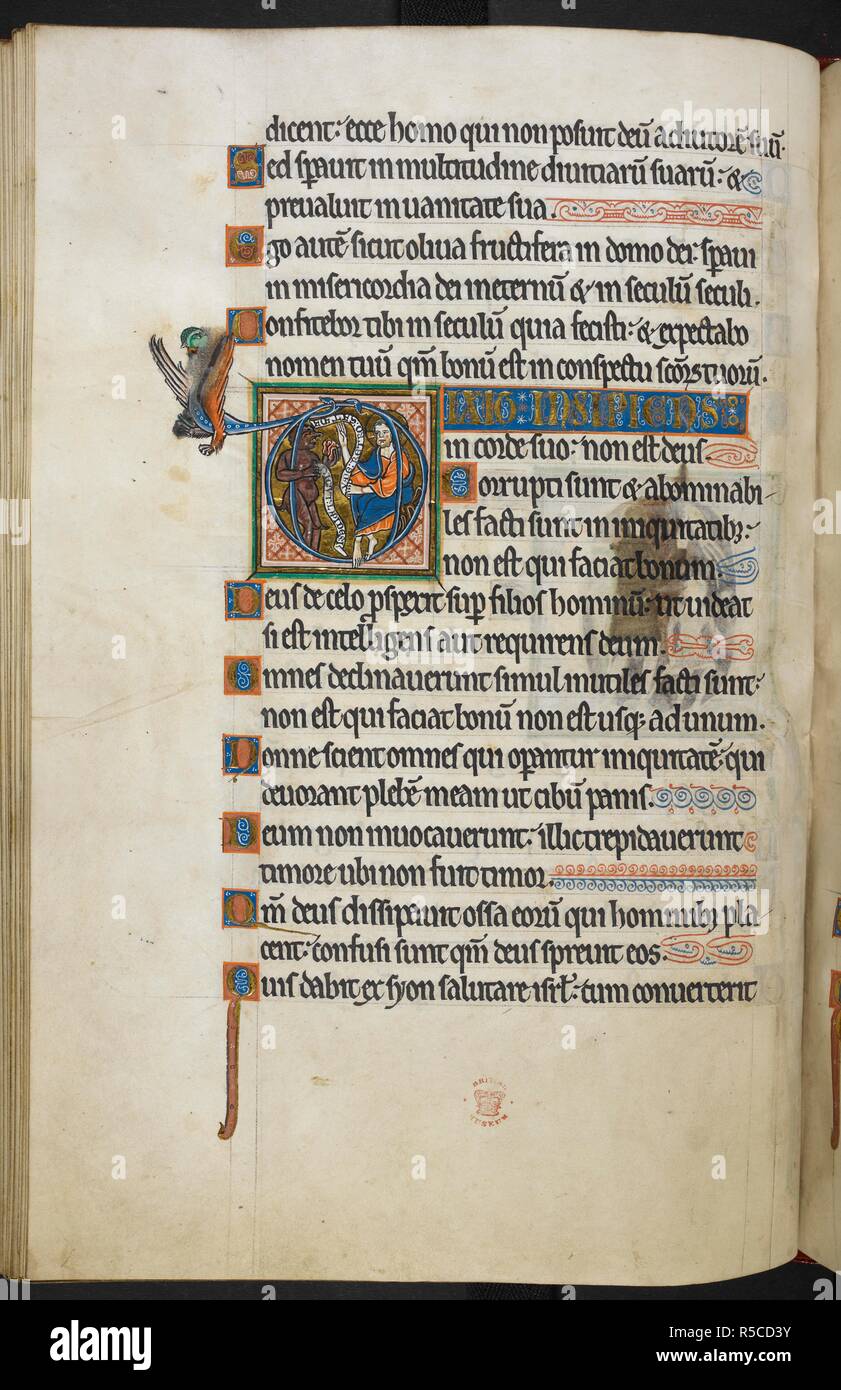 dicent: ecce homo qui non posuit deū adiutorē suū.
Sed spauit in multitudine diuitiarū suarū: &
preualuit in uanitate sua.
Ego autē sicut oliua fructifera in domo dei: spaui
in misericordia dei in eternū & in seculū seculi.
Confitebor tibi in seculū quia fecisti: & expectabo
nomen tuū qm̄ bonū est in conspectu scōꝝ tuorū.
DIXIT INSIPIENS
in corde suo: non est deus.
Corrupti sunt & abominabi-
les facti sunt in iniquitatibꝫ:
non est qui faciat bonum.
Deus de celo pspexit sup filios hominū: ut uideat
si est intelligens aut requirens deum.
Omnes declinauerunt simul inutiles facti sunt:
non est qui faciat bonū non est usqꝫ ad unum.
Nonne scient omnes qui opantur iniquitatē: qui
deuorant plebē meam ut cibū panis.
Deum non inuocauerunt: illic trepidauerunt
timore ubi non fuit timor.
Qm̄ deus dissipauit ossa eorū qui hominibꝫ pla-
cent: confusi sunt qm̄ deus spreuit eos.
Quis dabit ex syon salutare isrl̄: cum conuerterit
BRITISH
MUSEUM
alamy
Image ID: R5CD3Y
www.alamy.com